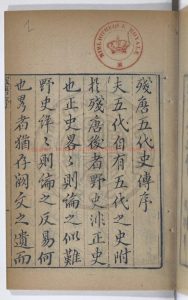 殘唐五代史傳序
夫五代自有五代之史附
扵殘唐後者野史非正史
也正史畧畧則論之似難
野史詳詳則論之反易何
也畧者猶存闕文之遺而
BIBLIOTHEQUE ROYALE